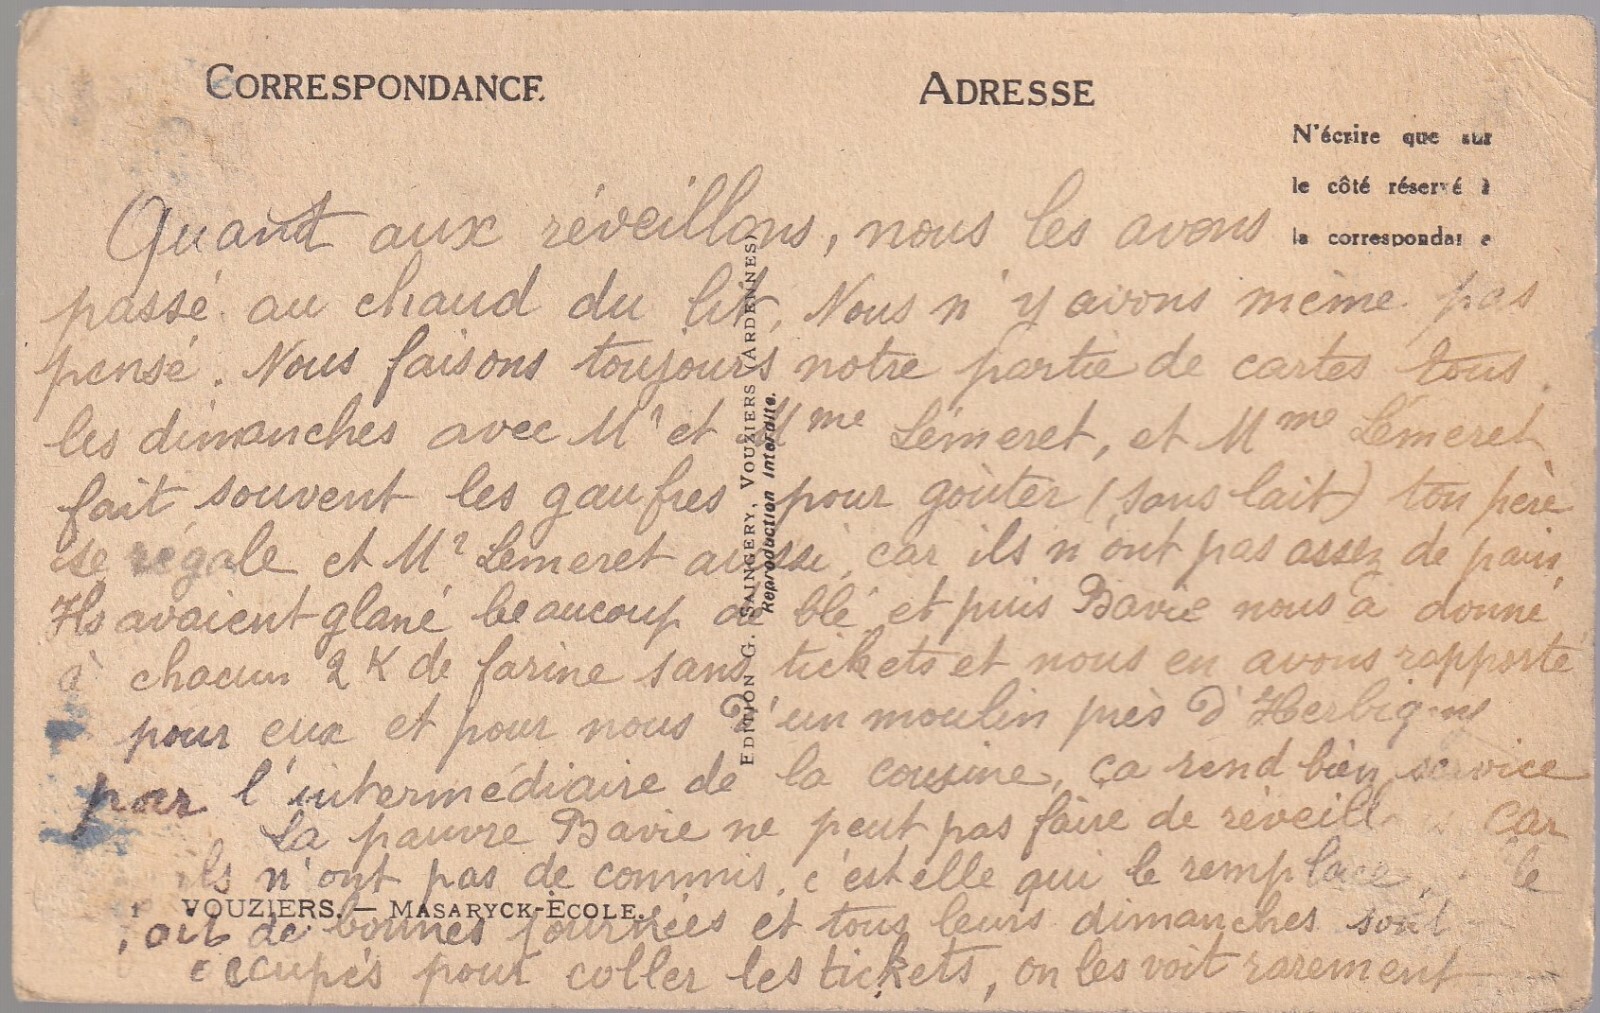 CORRESPONDANCE
ADRESSE
N'écrire que sur
le côté réservé à
la correspondance
Quant aux réveillons, nous les avons
passé au chaud du lit, Nous n'y avons même pas
pensé. Nous faisons toujours notre partie de cartes tous
les dimanches avec Mr et Mme Lémeret, et Mme Lémeret
fait souvent les gaufres pour goûter (sans lait) ton père
se régale et Mr Lemeret aussi, car ils n'ont pas assez de pain,
Ils avaient glané beaucoup de blé et puis Bavie nous a donné
à chacun 2 K de farine sans tickets et nous en avons rapporté
pour eux et pour nous d'un moulin près d'Herbigny
par l'intermédiaire de la cousine, ça rend bien service
La pauvre Bavie ne peut pas faire de réveillons car
ils n'ont pas de commis, c'est elle qui le remplace, le
de bonnes journées et tous leurs dimanches sont
occupés pour coller les tickets, on les voit rarement
1 VOUZIERS. — MASARYCK-ECOLE.
EDITION G. SAINGERY, VOUZIERS (ARDENNES)
Reproduction Interdite.